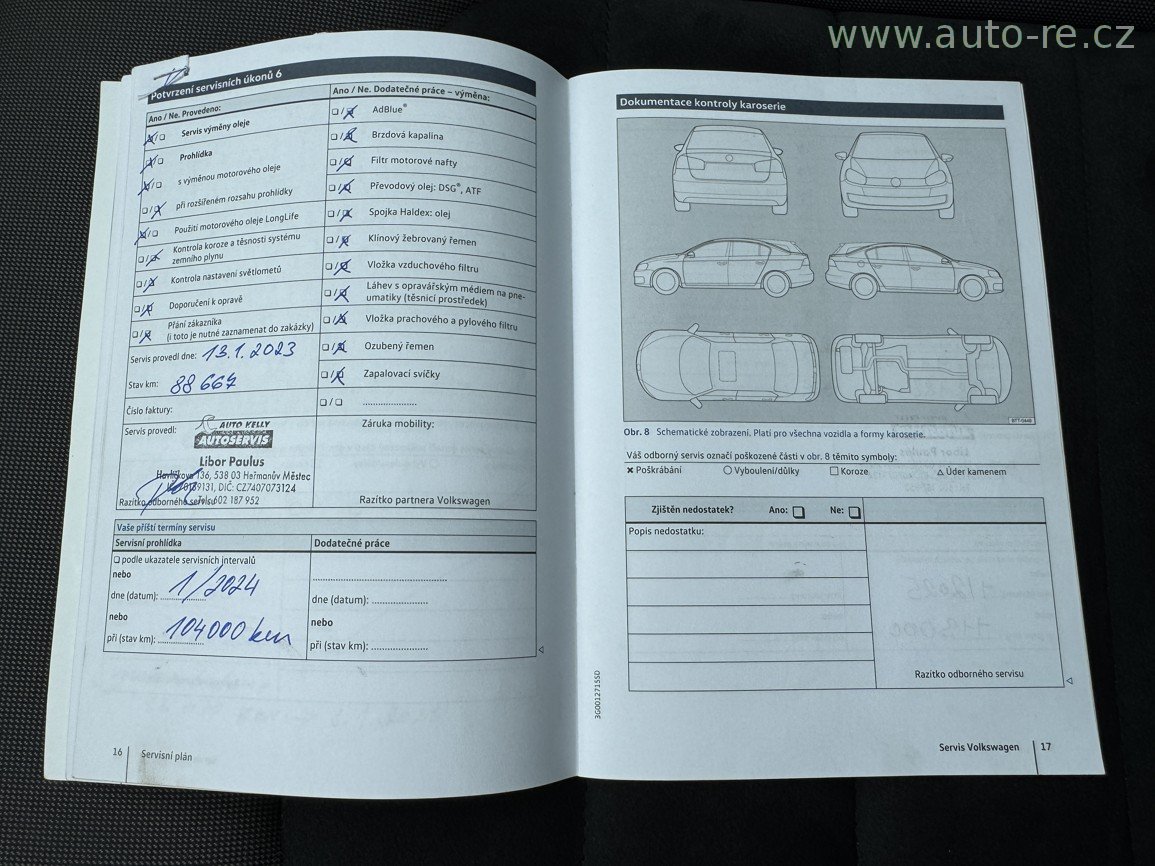 www.auto-re.cz
Potvrzení servisních úkonů 6
Ano / Ne. Provedeno:
Servis výměny oleje
Prohlídka
s výměnou motorového oleje
při rozšířeném rozsahu prohlídky
Použití motorového oleje LongLife
Kontrola koroze a těsnosti systému
zemního plynu
Kontrola nastavení světlometů
Doporučení k opravě
Přání zákazníka
(i toto je nutné zaznamenat do zakázky)
Servis provedl dne: 13.1.2023
Stav km: 88 667
Číslo faktury:
Servis provedl:
AUTO KELLY
AUTOSERVIS
Libor Paulus
Havlíčkova 136, 538 03 Heřmanův Městec
DIČ: CZ7407073124
Tel.: 602 187 952
Razítko odborného servisu
Ano / Ne. Dodatečné práce – výměna:
AdBlue®
Brzdová kapalina
Filtr motorové nafty
Převodový olej: DSG®, ATF
Spojka Haldex: olej
Klínový žebrovaný řemen
Vložka vzduchového filtru
Láhev s opravářským médiem na pne-
umatiky (těsnicí prostředek)
Vložka prachového a pylového filtru
Ozubený řemen
Zapalovací svíčky
....................
Záruka mobility:
Razítko partnera Volkswagen
Vaše příští termíny servisu
Servisní prohlídka
podle ukazatele servisních intervalů
nebo
dne (datum): 1/2024
nebo
při (stav km): 104000 km
Dodatečné práce
dne (datum): ....................
nebo
při (stav km): ....................
16 Servisní plán
Dokumentace kontroly karoserie
Obr. 8 Schematické zobrazení. Platí pro všechna vozidla a formy karoserie.
Váš odborný servis označí poškozené části v obr. 8 těmito symboly:
× Poškrábání ○ Vyboulení/důlky □ Koroze △ Úder kamenem
Zjištěn nedostatek? Ano: Ne:
Popis nedostatku:
Razítko odborného servisu
3G0012715SD
Servis Volkswagen 17